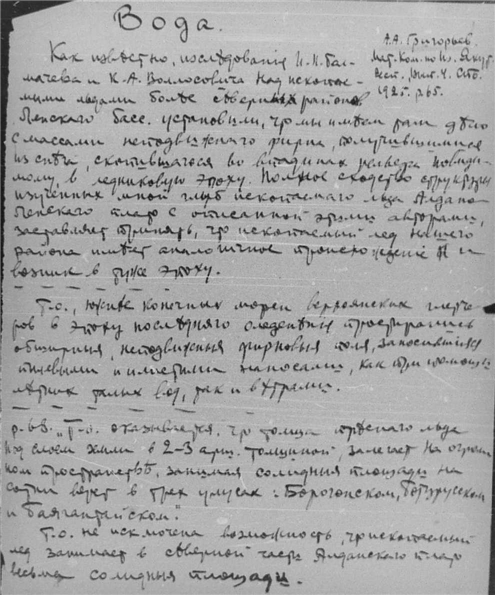 Вода.
А.А. Григорьев.
Мат. Ком. по Из. Якут.
1925. р. 65.
Как известно, изследования И.П. Тол-
мачева и К.А. Воллосовича над ископае-
мыми льдами более северных районов
Ленского басс. установили, что мы имеем там дело
с массами неподвижного фирна, получившимися
из снега, скопившагося во впадинах рельефа, повиди-
мому, в ледниковую эпоху. Полное сходство структуры
изученных мной глыб ископаемаго льда Алдано-
Ленскаго плато с описанной этими авторами,
заставляет принять, что ископаемый лед нашего
района имеет аналогичное происхождение и
возник в ту же эпоху.
Т.о., южнее конечных морен верхоянских глетче-
ров в эпоху последняго оледенения простирались
обширныя, неподвижныя фирновыя поля, заносившияся
и наносами, как при помощи
летних талых вод, так и ветрами.
р. 68. „Т.о. оказывается, что толща преснаго льда
под слоем земли в 2-3 арш. толщиной, залегает на огром-
ном пространстве, занимая солидныя площади на
сотни верст в трех улусах: Борогонском, Ботурусском
и Баягантайском."
Т.о. не исключена возможность, что ископаемый
лед занимает в северной части Алданскаго плато
весьма солидныя площади.